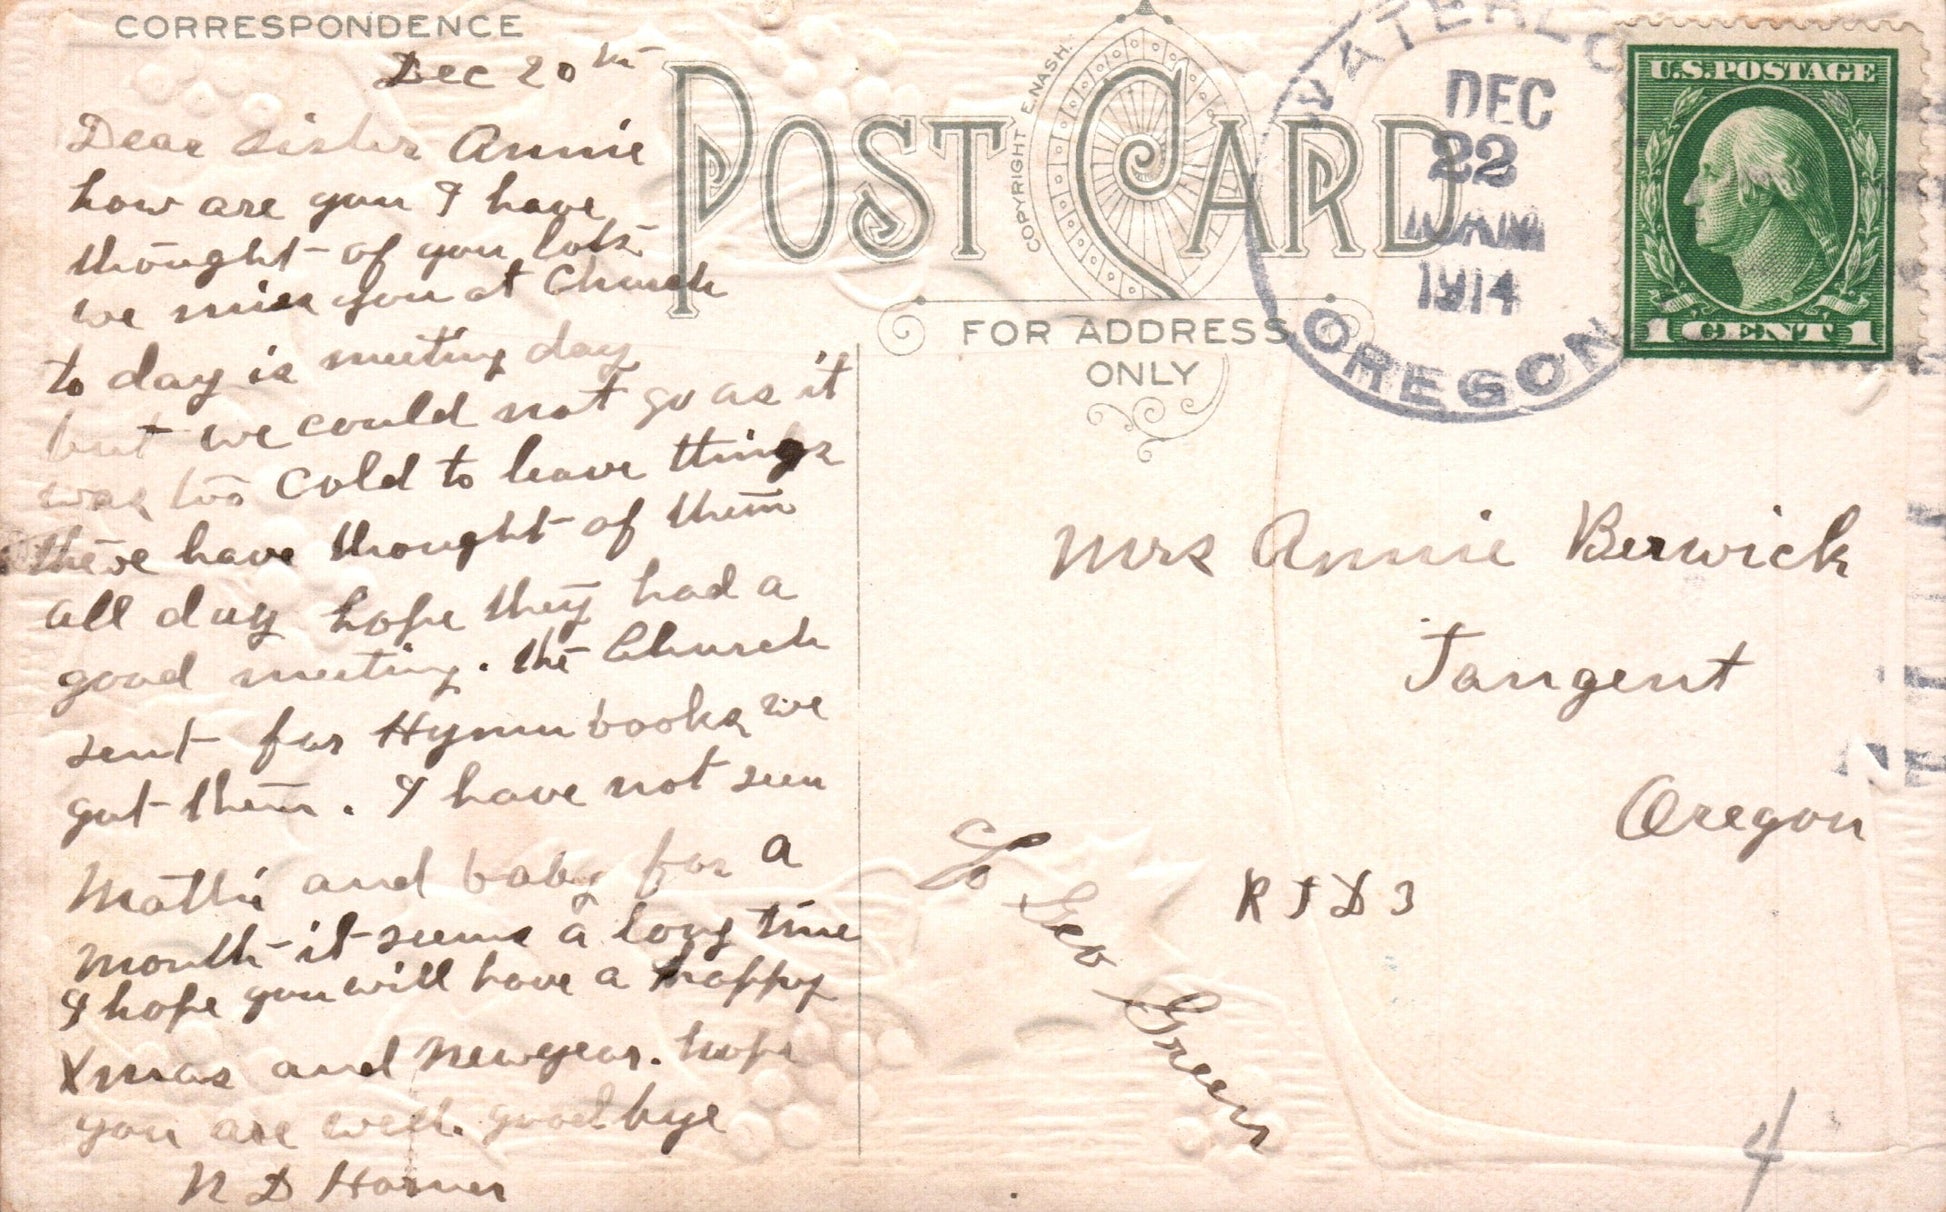 CORRESPONDENCE
Dec 20th
Dear Sister Annie
how are you I have
thought of you lots
we miss you at Church
to day is meeting day
but we could not go as it
was too cold to leave things
there have thought of them
all day hope they had a
good meeting. the Church
sent for Hymn books we
got them. I have not seen
Mattie and baby for a
month it seems a long time
I hope you will have a happy
Xmas and Newyear. hope
you are well. good bye
N D Horner
POST CARD
COPYRIGHT E. NASH.
FOR ADDRESS
ONLY
WATERLOO
DEC
22
1914
OREGON
U.S. POSTAGE
1 CENT 1
Mrs Annie Berwick
Tangent
Oregon
R F D 3
Co Geo Green
4